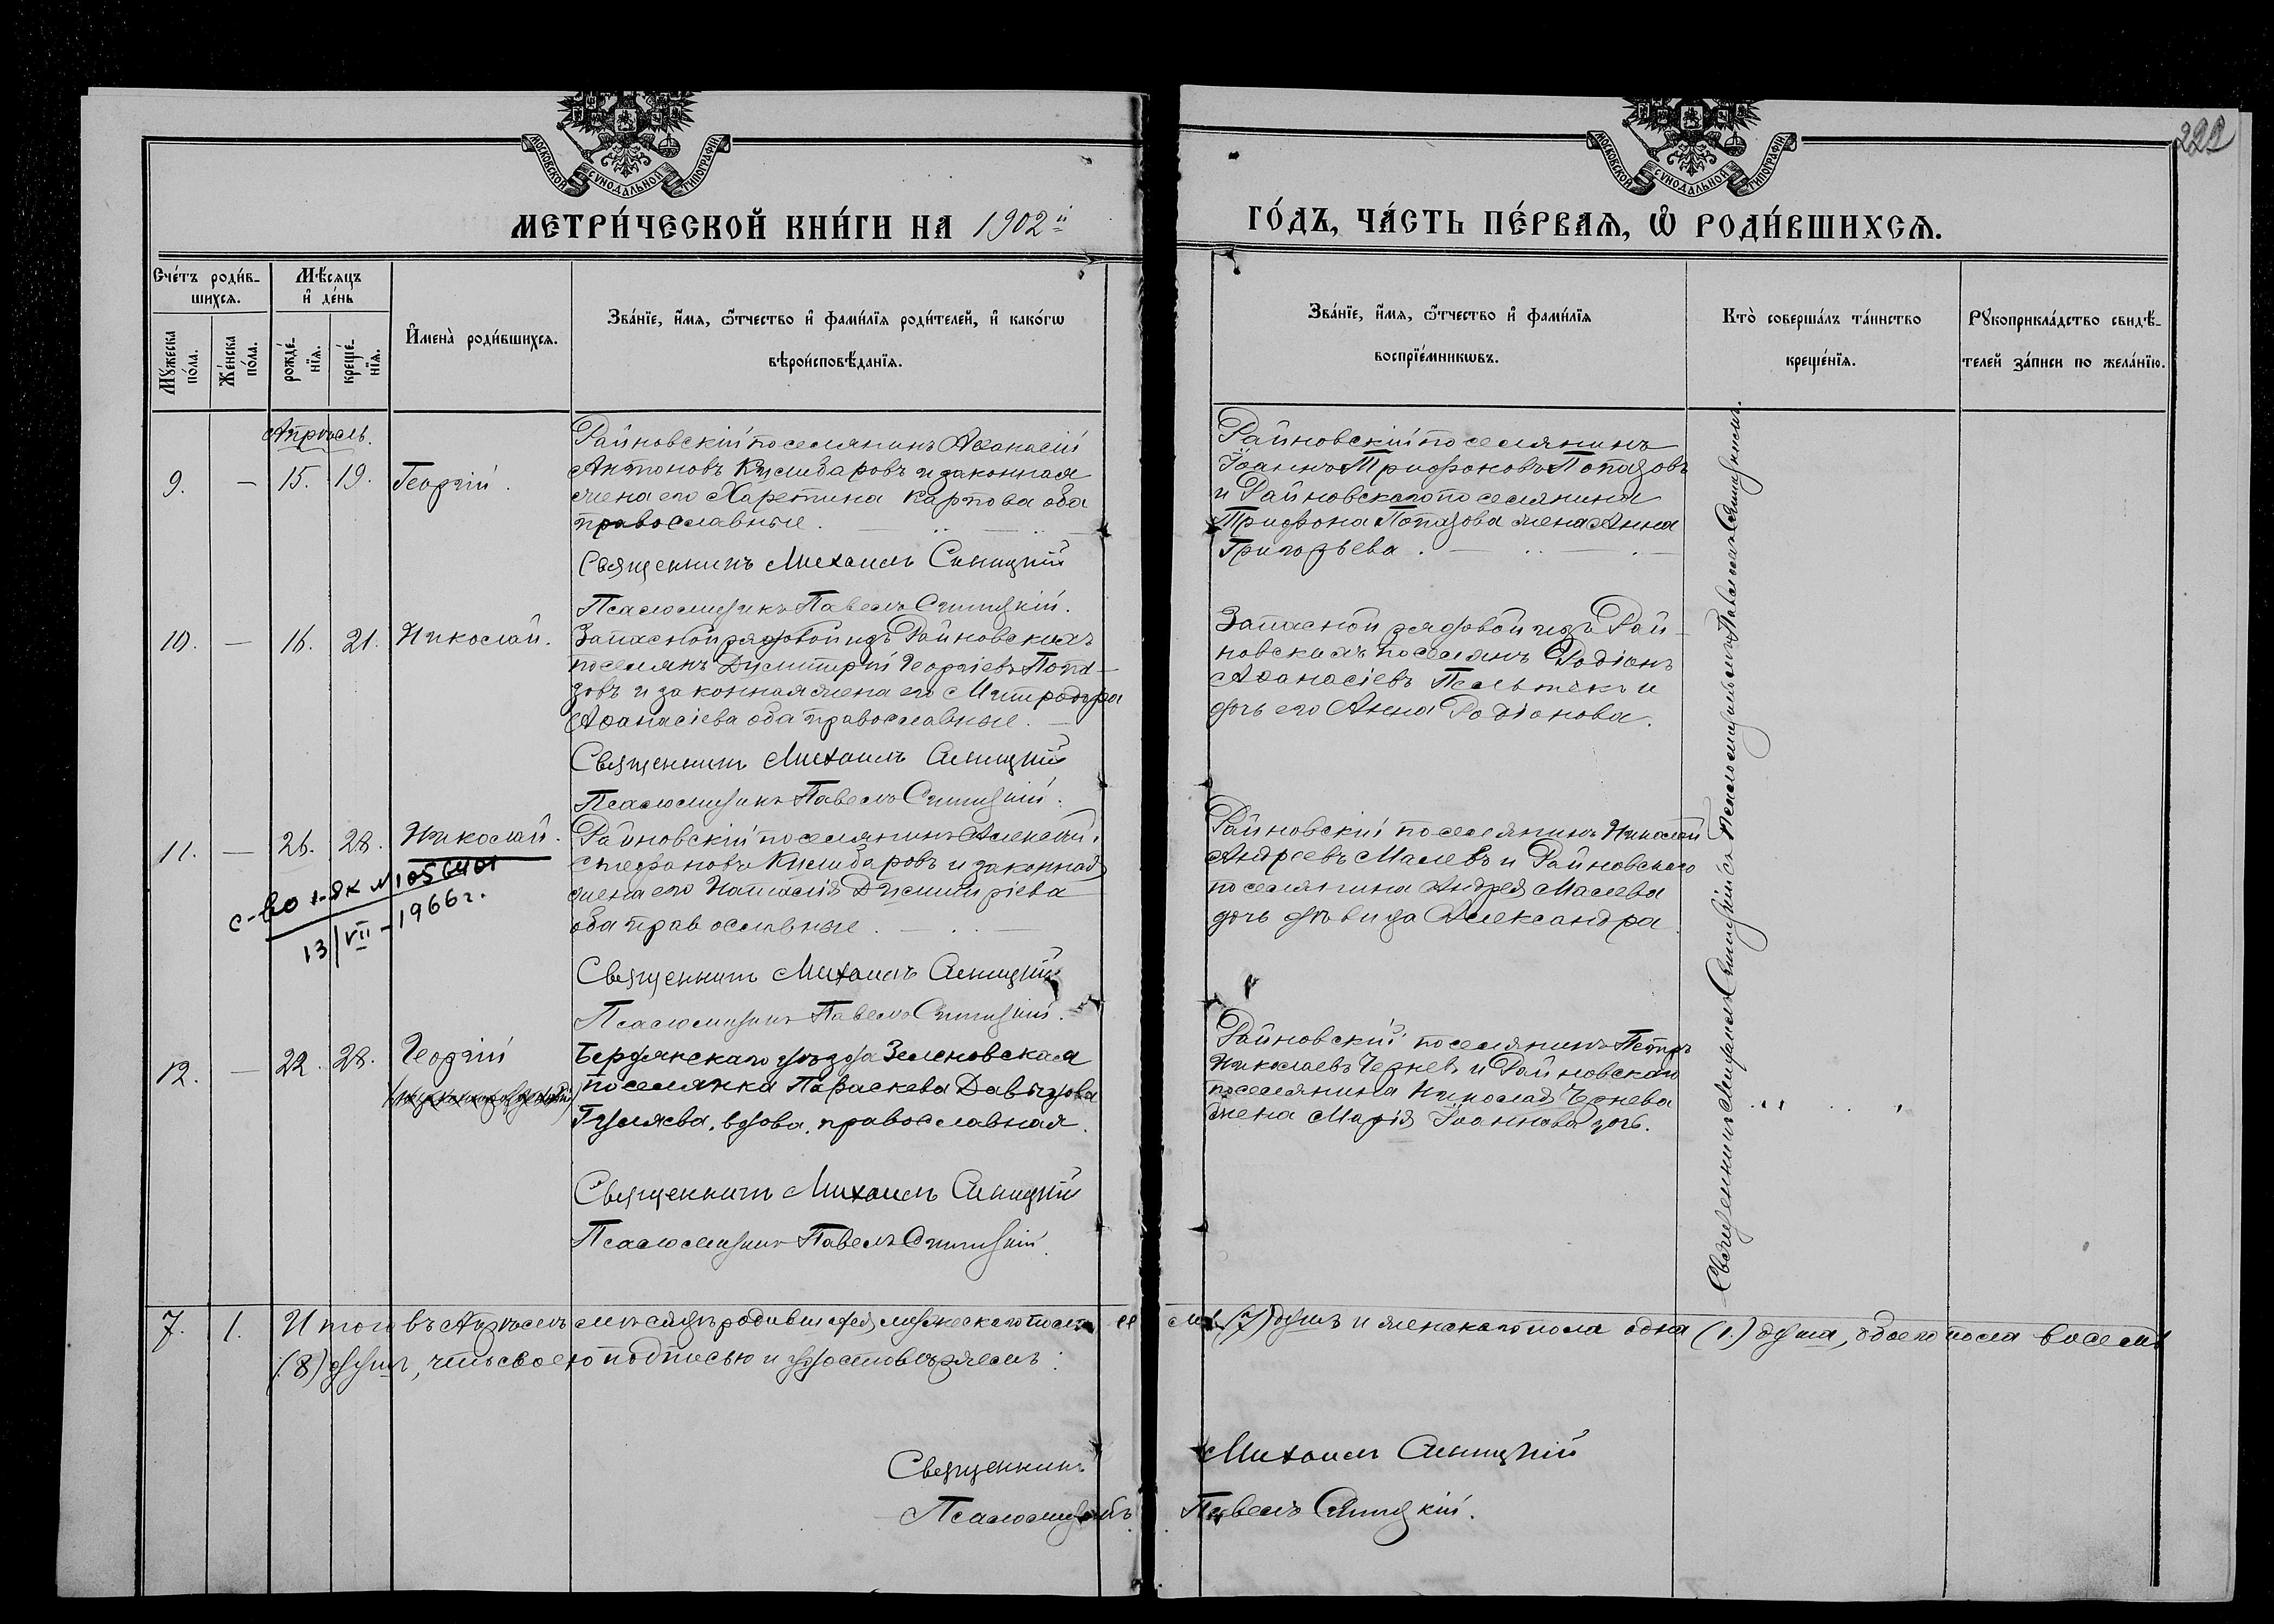 222
МОСКОВСКОЙ СУНОДАЛЬНОЙ ТИПОГРАФІИ
МОСКОВСКОЙ СУНОДАЛЬНОЙ ТИПОГРАФІИ
МЕТРИ́ЧЕСКОЙ КНИ́ГИ НА 1902 й
ГО́ДЪ, ЧА́СТЬ ПЕ́РВАѦ, Ѽ РОДИ́ВШИХСѦ.
Сче́тъ роди́в-
шихсѧ.
Мѣ́сѧцъ
и҆ де́нь
Мꙋ́жеска
по́ла.
Же́нска
по́ла.
рожде́-
нїѧ.
креще́-
нїѧ.
И҆мена̀ роди́вшихсѧ.
Зва́нїе, и҆́мѧ, ѻ҆́тчество и҆ фами́лїѧ роди́телей, и҆ како́гѡ
вѣроисповѣ́данїѧ.
Зва́нїе, и҆́мѧ, ѻ҆́тчество и҆ фами́лїѧ
воспрїе́мникѡвъ.
Кто̀ соверша́лъ та́инство
креще́нїѧ.
Рꙋкоприкла́дство свидѣ́-
телей за́писи по жела́нїю.
Апрѣль.
9. — 15. 19. Георгій.
Райновскій поселянинъ Аѳанасій
Антоновъ Кушибаровъ и законная
жена его Харетина Карпова оба
православные.
Священникъ Михаилъ Синицкій
Псаломщикъ Павелъ Синицкій.
Райновскій поселянинъ
Іоаннъ Трифоновъ Попазовъ
и Райновскаго поселянина
Трифона Попазова жена Анна
Григорьева.
10. — 16. 21. Николай.
Запасной рядовой изъ Райновскихъ
поселянъ Димитрій Георгіевъ Попа-
зовъ и законная жена его Митродора
Аѳанасіева оба православные.
Священникъ Михаилъ Синицкій
Псаломщикъ Павелъ Синицкій.
Запасной рядовой изъ Рай-
новскихъ поселянъ Родіонъ
Аѳанасіевъ Пельтекъ и
дочь его Анна Родіонова.
11. — 26. 28. Николай.
с-во I-ЯК №
13/VII-1966 г.
Райновскій поселянинъ Алексій
Стефановъ Кушибаровъ и законная
жена его Наталія Димитріева
оба православные.
Священникъ Михаилъ Синицкій
Псаломщикъ Павелъ Синицкій.
Райновскій поселянинъ Николай
Андреевъ Малевъ и Райновскаго
поселянина Андрея Малева
дочь дѣвица Александра
12. — 22. 28. Георгій
Бердянскаго уѣзда Зеленовская
поселянка Параскева Давыдова
Гуляева, вдова, православная.
Священникъ Михаилъ Синицкій
Псаломщикъ Павелъ Синицкій.
Райновскій поселянинъ Петръ
Николаевъ Чернев и Райновскаго
поселянина Николая Чернева
жена Марія Іоаннова дочь.
Священникъ Михаилъ Синицкій съ Псаломщикомъ Павломъ Синицкимъ.
7. 1. Итого въ Апрѣлѣ мѣсяцѣ родившихся мужескаго пола семь (7) душъ и женскаго пола одна (1.) душа, обоего пола восемь
(8) душъ, что своею подписью и удостовѣряемъ:
Священникъ Михаилъ Синицкій
Псаломщикъ Павелъ Синицкій.